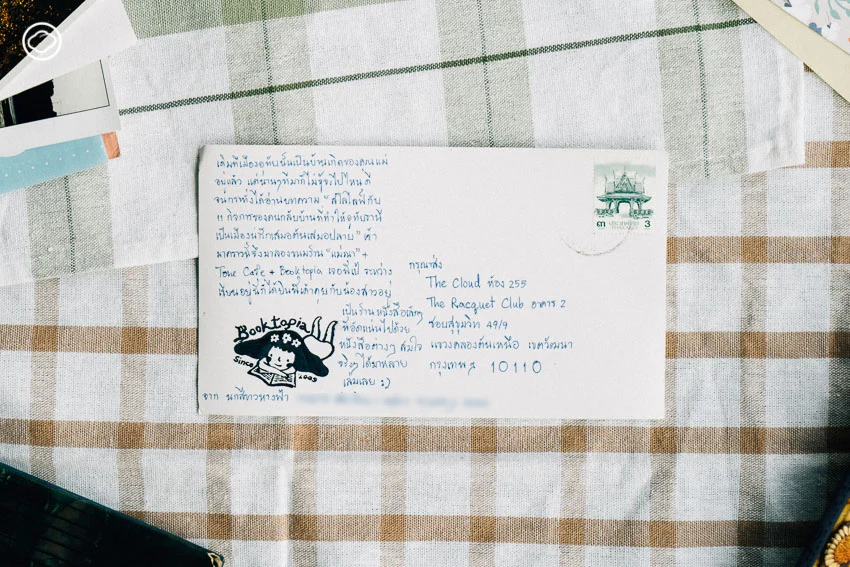 เดิมทีเมืองอุทัยนั้นเป็นบ้านเกิดของคุณแม่
อยู่แล้ว แต่ผ่านๆทีมาก็ไม่รู้จะไปไหนดี
จนกระทั่งได้อ่านบทความ "สโลไลฟ์กับ
11 กิจการของคนกลับบ้านที่ทำให้อุทัยธานี
เป็นเมืองน่ารักเสมอต้นเสมอปลาย" ค่ำ
มาคราวนี้จึงมาลองขนมร้าน "แม่นา" +
Tone Cafe + Booktopia เจอพี่เป้ ระหว่าง
เขียนอยู่นี้ก็ได้ยินพี่เค้าคุยกับน้องสาวอยู่
เป็นร้านหนังสือเล็กๆ
ที่อัดแน่นไปด้วย
หนังสือต่างๆ สนใจ
จริงๆ ได้มาหลาย
เล่มเลย :)
Booktopia
Since 2009
จาก นกสีขาวหางฟ้า
๓ ประเทศไทย 3
THAILAND
กรุณาส่ง
The Cloud ห้อง 255
The Racquet Club อาคาร 2
ซอยสุขุมวิท 49/9
แขวงคลองตันเหนือ เขตวัฒนา
กรุงเทพฯ 10110